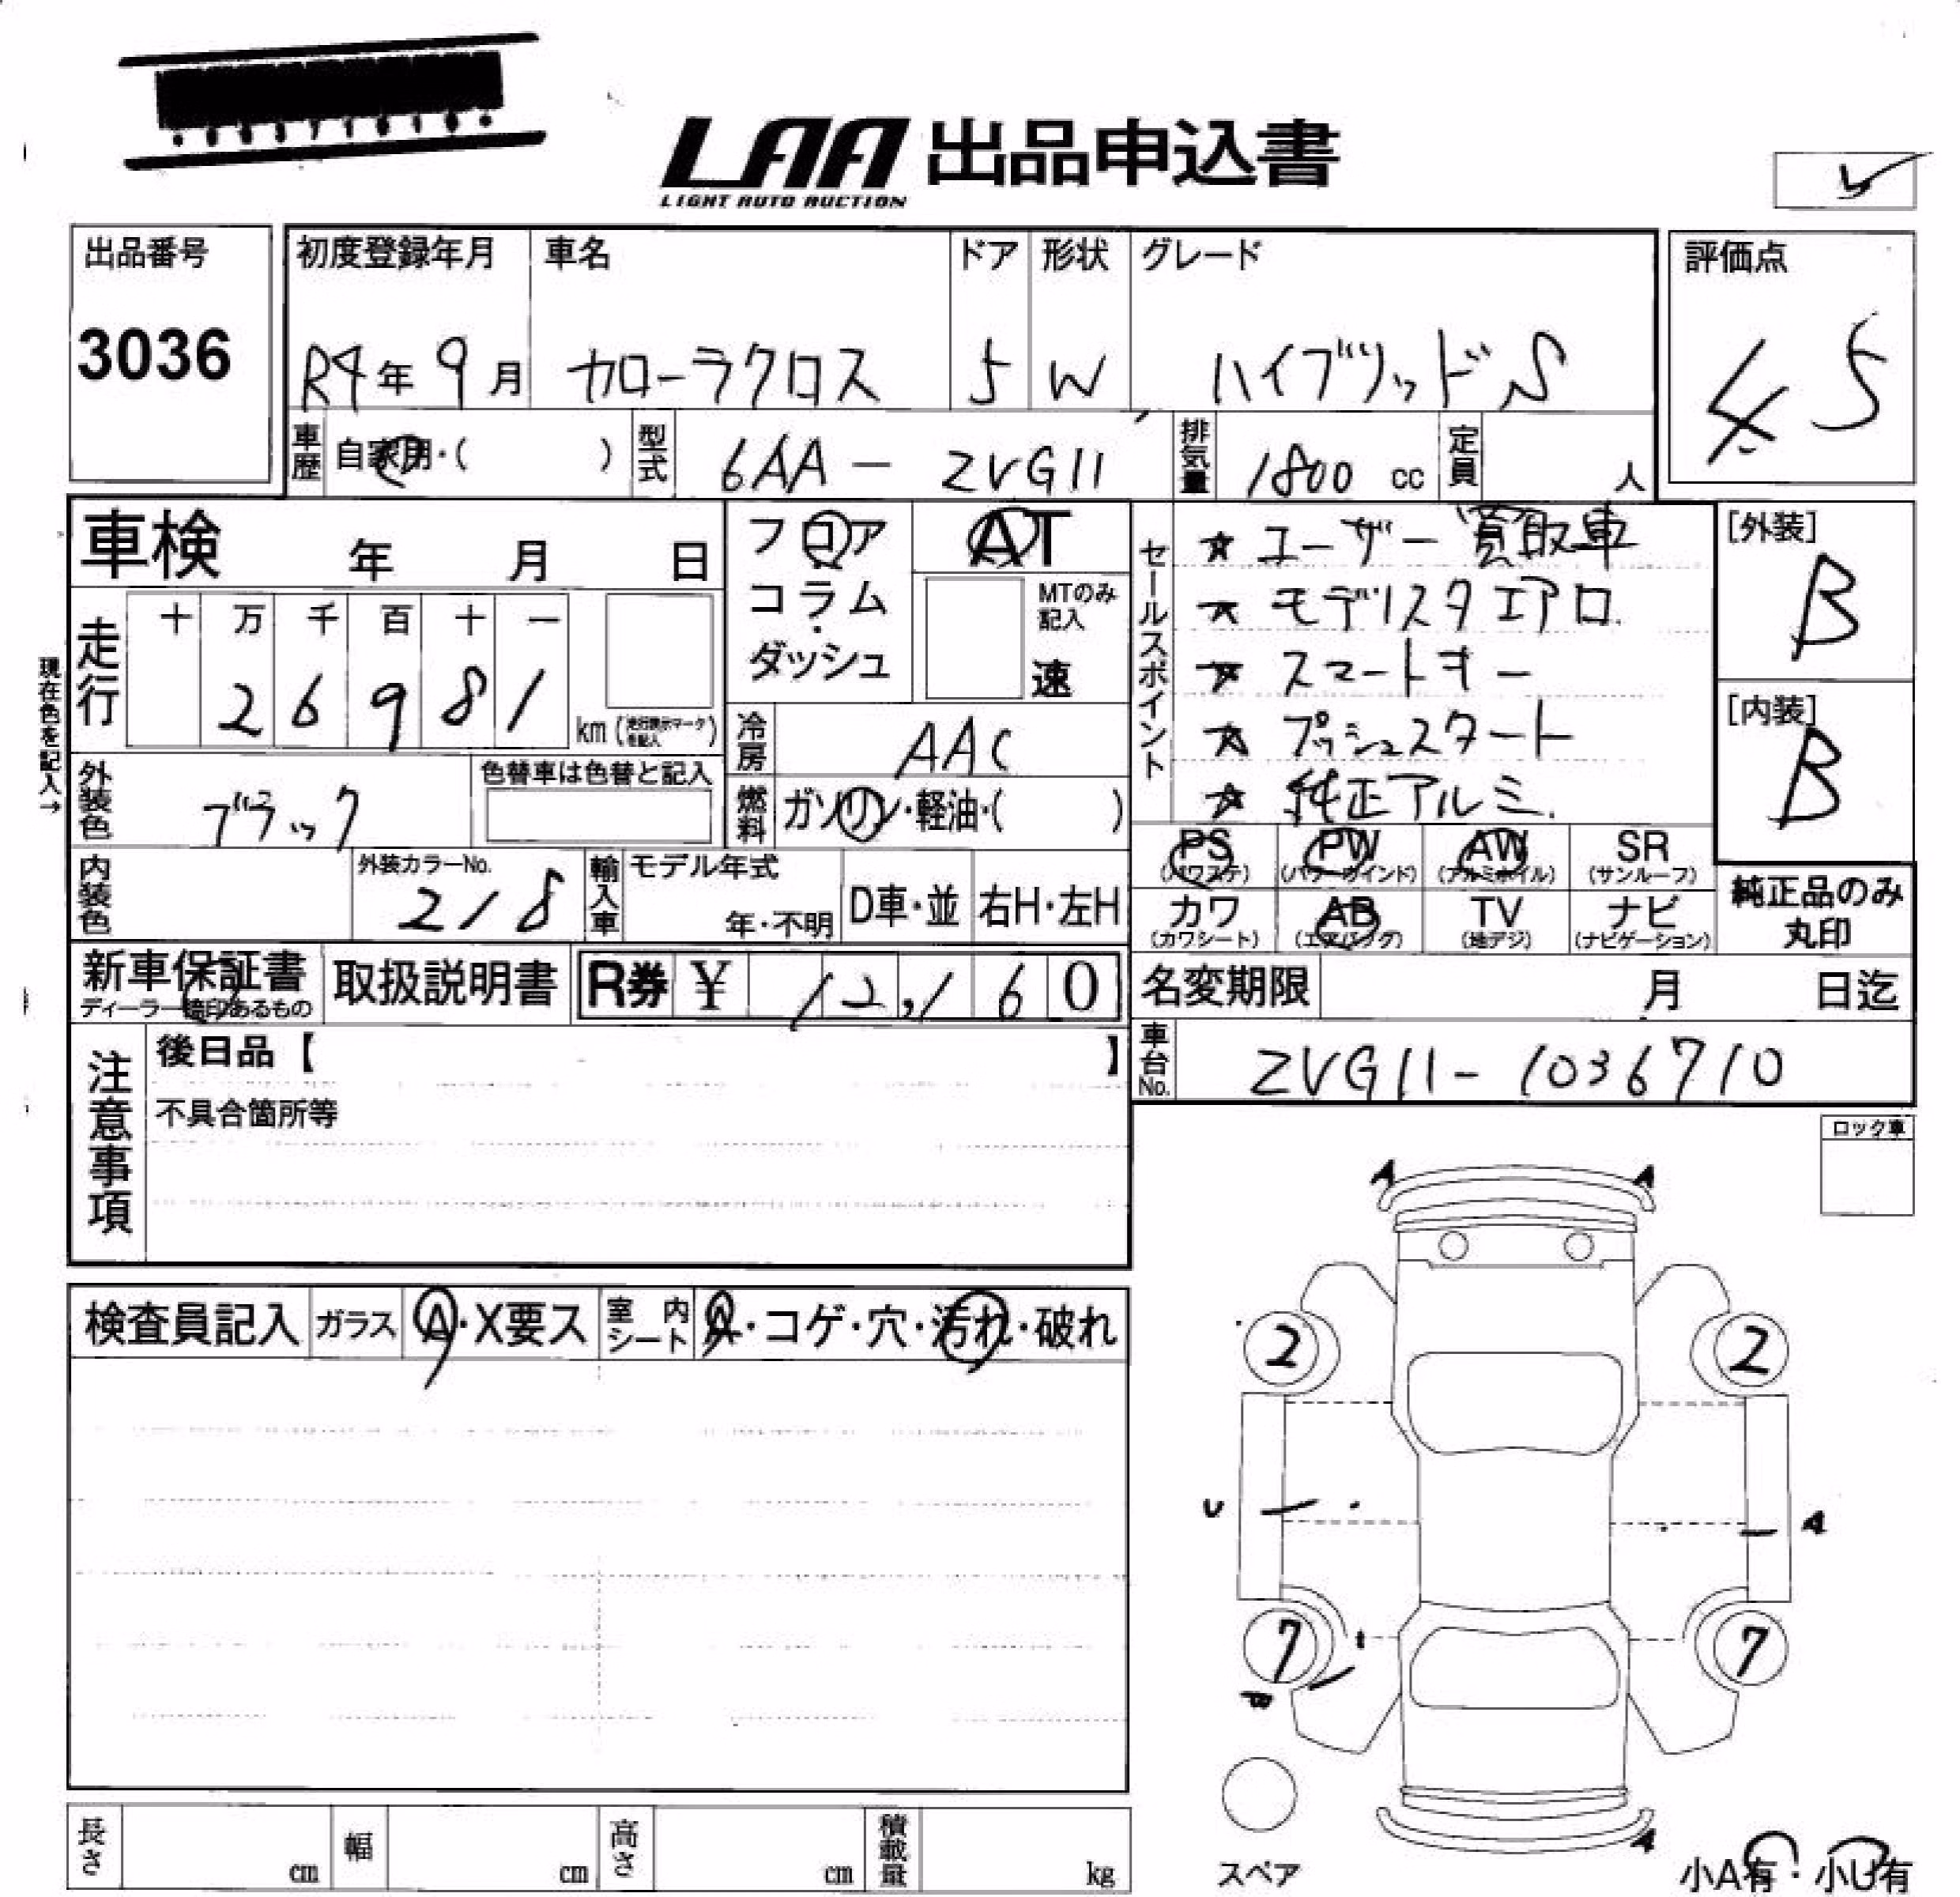 LAA 出品申込書
LIGHT AUTO AUCTION
出品番号
3036
初度登録年月
R4年 9月
車名
カローラクロス
ドア
5
形状
W
グレード
ハイブリッドS
評価点
4.5
車歴 自家用・( )
型式 6AA - ZVG11
排気量 1800 cc
定員 人
車検 年 月 日
フロア
コラム
・
ダッシュ
AT
MTのみ
記入
速
セールスポイント
☆ ユーザー買取車
☆ モデリスタエアロ.
☆ スマートキー
☆ プッシュスタート
☆ 純正アルミ.
[外装]
B
[内装]
B
現在色を記入→
走行
十 万 千 百 十 一
2 6 9 8 1
km (走行表示マークを記入)
冷房 AAC
外装色 ブラック
色替車は色替と記入
燃料 ガソリン・軽油・( )
内装色
外装カラーNo.
218
輸入車
モデル年式
年・不明
D車・並
右H・左H
PS
(パワステ)
PW
(パワーウインド)
AW
(アルミホイル)
SR
(サンルーフ)
カワ
(カワシート)
AB
(エアバッグ)
TV
(地デジ)
ナビ
(ナビゲーション)
純正品のみ
丸印
新車保証書
ディーラー捺印あるもの
取扱説明書
R券 ¥ 12,160
名変期限 月 日迄
注意事項
後日品【 】
不具合箇所等
車台No. ZVG11-1036710
ロック車
A A
検査員記入
ガラス A・X要ス
室内シート A・コゲ・穴・汚れ・破れ
2 2
U A
7 7
W
A
スペア
小A有・小U有
長さ cm
幅 cm
高さ cm
積載量 kg